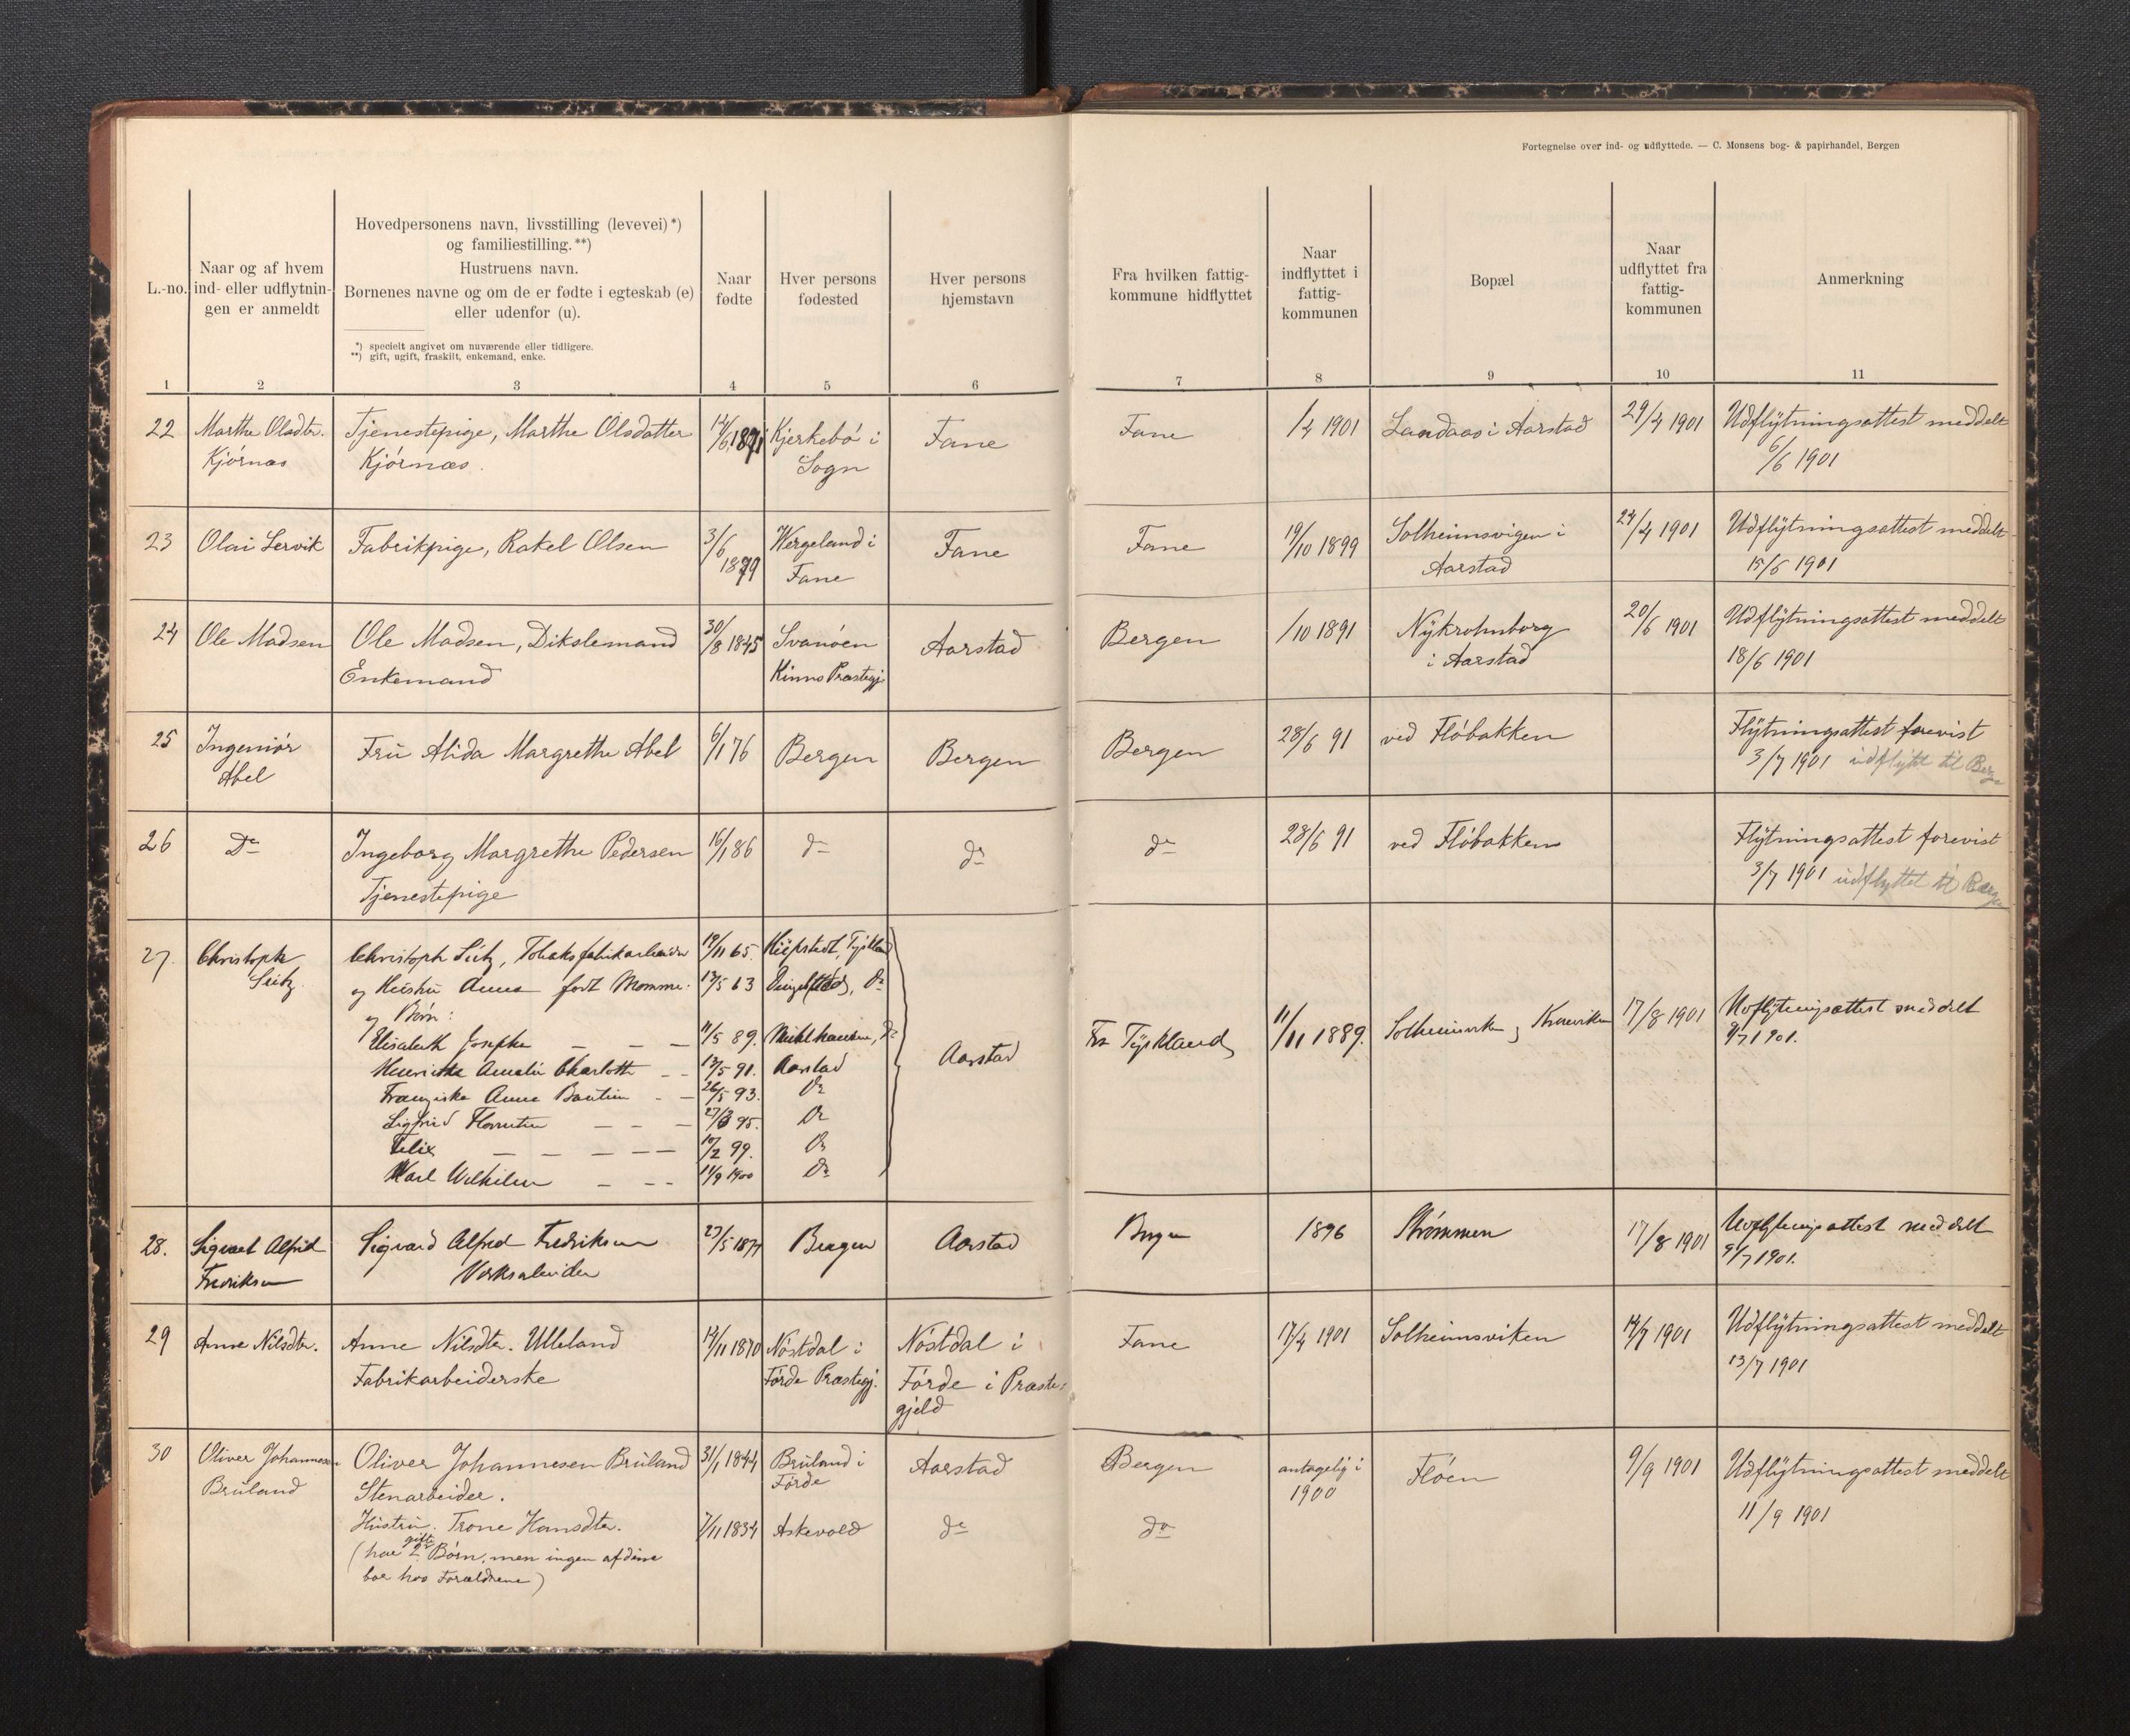 Fortegnelse over ind- og udflyttede. — C. Monsens bog- & papirhandel, Bergen
L.-no.
Naar og af hvem
ind- eller udflytnin-
gen er anmeldt
Hovedpersonens navn, livsstilling (levevei) *)
og familiestilling. **)
Hustruens navn.
Børnenes navne og om de er fødte i egteskab (e)
eller udenfor (u).
*) specielt angivet om nuværende eller tidligere.
**) gift, ugift, fraskilt, enkemand, enke.
Naar
fødte
Hver persons
fødested
Hver persons
hjemstavn
Fra hvilken fattig-
kommune hidflyttet
Naar
indflyttet i
fattig-
kommunen
Bopæl
Naar
udflyttet fra
fattig-
kommunen
Anmerkning
1 2 3 4 5 6 7 8 9 10 11
22 Marthe Olsdtr. Tjenestepige, Marthe Olsdatter 14/6 1871 Kjerkebó i Fane Fane 1/4 1901 Landaas i Aarstad 29/4 1901 Udflÿtningsattest meddelt
Kjórnæs Kjórnæs. Sogn 6/6 1901
23 Olai Lervik Fabrikpige, Rakel Olsen 3/6 Wergeland i Fane Fane 19/10 1899 Solheimsvigen i 24/4 1901 Udflÿtningsattest meddelt
1879 Fane Aarstad 15/6 1901
24 Ole Madsen Ole Madsen, Dikslemand 30/8 1845 Svanóen Aarstad Bergen /10 1891 Nÿkrohnborg 20/6 1901 Udflÿtningsattest meddelt
Enkemand Kinns Præstegj. i Aarstad 18/6 1901
25 Ingeniór Fru Alida Margrethe Abel 6/1 76 Bergen Bergen Bergen 28/6 91 ved Flóbakken Flÿtningsattest forevist
Abel 3/7 1901 udflÿttet til Berg
26 Do Ingeborg Margrethe Pedersen 16/1 86 do do do 28/6 91 ved Flóbakken Flÿtningsattest forevist
Tjenestepige 3/7 1901 udflyttet til Berg
27. Christoph Christoph Seitz, Tobaksfabrikarbeider 19/11 65. Tÿskland
Seitz og Hustru Anna født 17/5 63 do
og Børn:
Elisabeth Josepha — — — 11/5 89. Mühlhausen, do Aarstad Fra Tÿskland 11/11 1889. Solheimsviken og 17/8 1901 Udflÿtningsattest meddelt
Henriette Amalie Charlotte — — 17/5 91. Aarstad 9/7 1901.
Franziska Anna — — 26/5 93. do
Sigfried Florentin — — — 27/3 95. do
Felix — — — — — 10/2 99. do
Karl Wilhelm — — — 11/9 1900 do
28. Sigvart Alfred Sigvard Alfred Fredriksen 27/5 1877 Bergen Aarstad Bergen 1896 Strømmen 17/8 1901 Udflÿtningsattest meddelt
Fredriksen Verksarbeider 9/7 1901.
29 Anne Nilsdtr. Anne Nilsdtr. Ulleland 14/11 1870 Nóstdal i Nóstdal i Fane 17/4 1901 Solheimsviken 14/7 1901 Udflÿtningsattest meddelt
Fabrikarbeiderske Fórde Præstegj. Fórde i Præste- 13/7 1901
gjeld
30 Oliver Johannesen Oliver Johannesen Bruland 31/1 1844 Bruland i Aarstad Bergen antagelig i Flóen 9/9 1901 Udflÿtningsattest meddelt
Bruland Stenarbeider. Fórde 1900 11/9 1901
Hustru. Trone Hansdtr. 7/11 1834 Askevold do do
(har 2 gifte Børn, men ingen af disse
bor hos Forældrene)